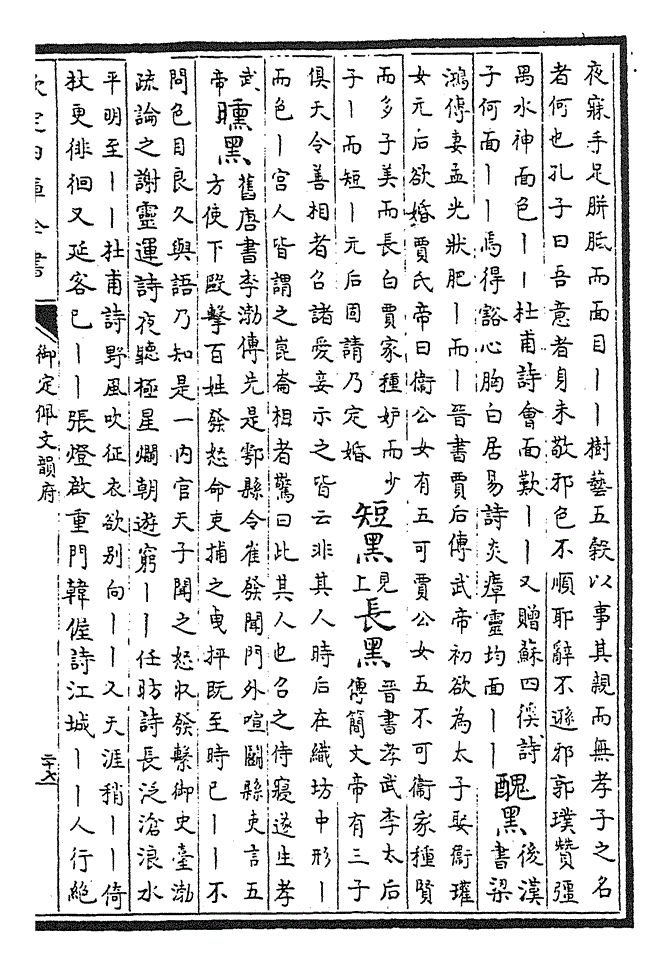 夜寐手足胼胝而面目丨丨樹藝五穀以事其親而無孝子之名
者何也孔子曰吾意者身未敬邪色不順耶辭不遜邪郭璞贊彊
禺水神面色丨丨杜甫詩會面歎丨丨又贈蘇四徯詩
子何面丨丨焉得豁心胸白居易詩炎瘴靈均面丨丨
醜黑
後漢
書梁
鴻傳妻孟光狀肥丨而丨晉書賈后傳武帝初欲為太子娶衛瓘
女元后欲婚賈氏帝曰衞公女有五可賈公女五不可衞家種賢
而多子美而長白賈家種妒而少
子丨而短丨元后固請乃定婚
短黑
見
上
長黑
晉書孝武李太后
傳簡文帝有三子
俱夭令善相者召諸愛妾示之皆云非其人時后在織坊中形丨
而色丨宮人皆謂之崑崙相者驚曰此其人也召之侍寢遂生孝
武
帝
曛黑
舊唐書李渤傳先是鄠縣令崔發聞門外喧鬭縣吏言五
方使下毆擊百姓發怒命吏捕之曳挳既至時已丨丨不
問色目良久與語乃知是一内官天子聞之怒收發繫御史臺渤
疏論之謝靈運詩夜聽極星爛朝遊窮丨丨任昉詩長泛滄浪水
平明至丨丨杜甫詩野風吹征衣欲别向丨丨又天涯稍丨丨倚
杖更徘徊又延客已丨丨張燈啟重門韓偓詩江城丨丨人行絶
欽定四庫全書
御定佩文韻府